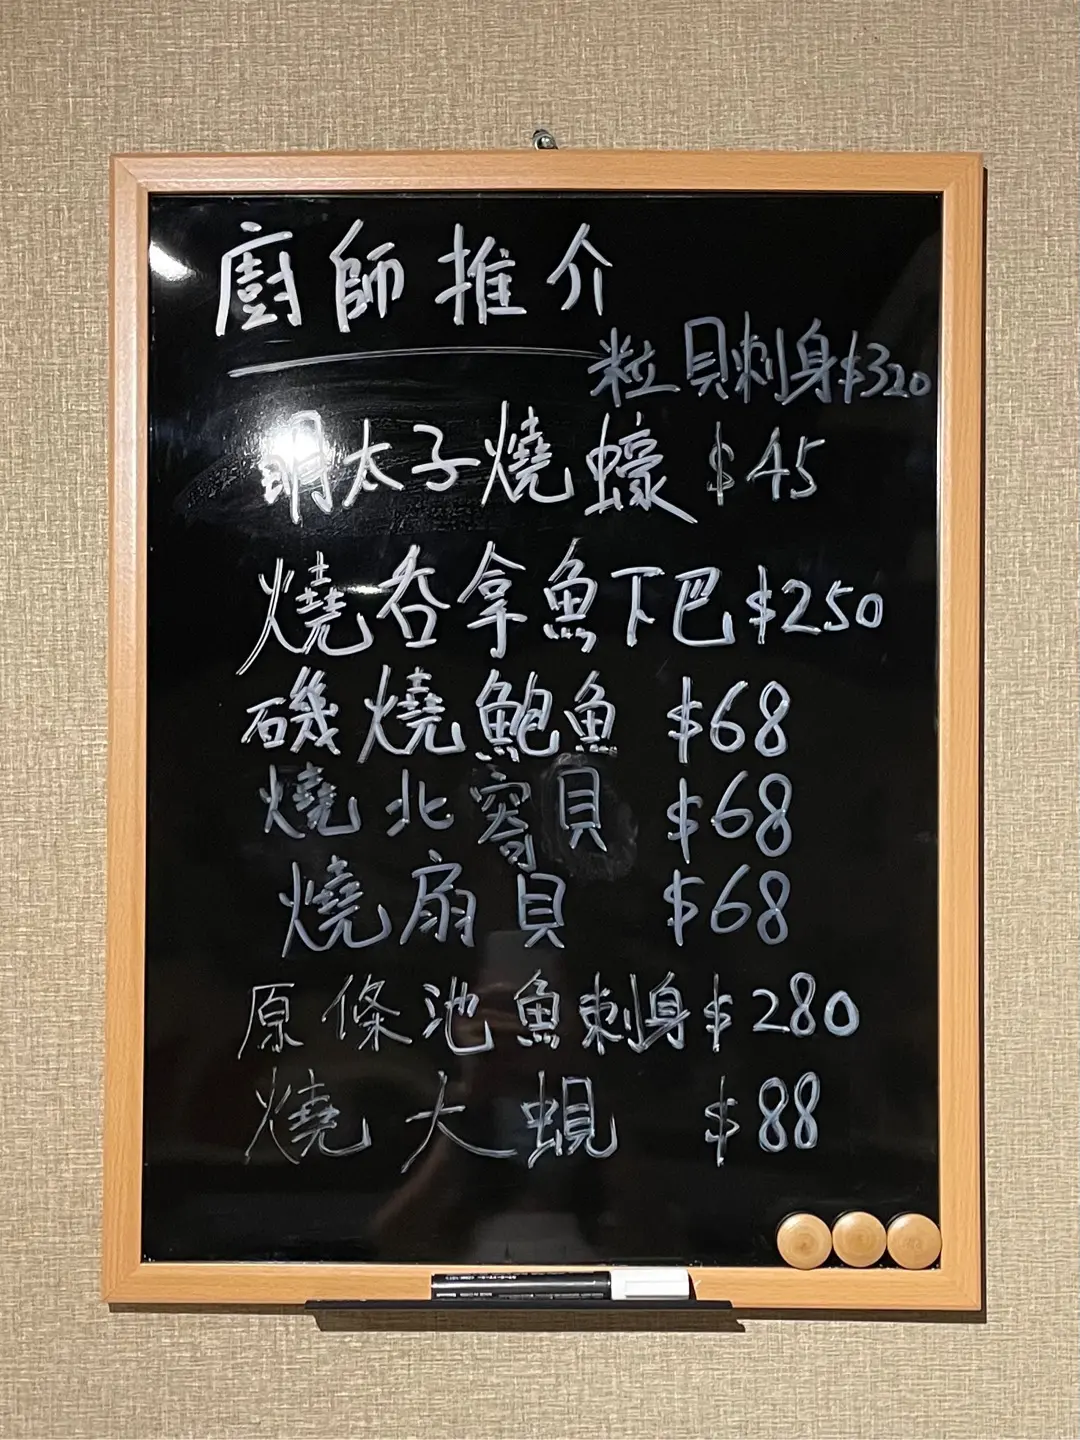 廚師推介
粒貝刺身$320
明太子燒蠔 $45
燒吞拿魚下巴 $250
磯燒鮑魚 $68
燒北寄貝 $68
燒扇貝 $68
原條池魚刺身 $280
燒大蜆 $88